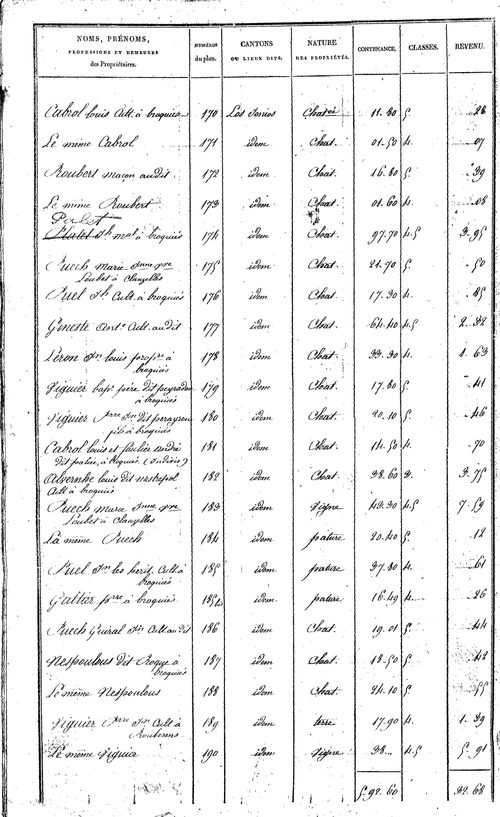 NOMS, PRÉNOMS, PROFESSIONS ET DEMEURES des Propriétaires. | NUMÉROS du plan. | CANTONS OU LIEUX DITS. | NATURE DES PROPRIÉTÉS. | CONTENANCE. | CLASSES. | REVENU.
Cabrol louis Cult. à broquies 170 Las Tonios Chat. 11.80 5. 28
Le même Cabrol 171 idem Chat. 01.50 4. 07
Roubert maçon audit 172 idem Chat. 16.80 5. 39
Le même Roubert 173 idem Chat. 01.60 4. 08
à broquiès 174 idem Chat. 97.70 4.5 3.95
Puech marie anne
Loubet à Clauzelles 175 idem Chat. 21.70 5. 50
Puel Cult. à broquiés 176 idem Chat. 17.30 4. 85
Geneste Ant.e Cult. audit 177 idem Chat. 64.40 4.5 2.32
Léron J.n louis prop.re à
broquiés 178 idem Chat. 33.30 4. 1.63
Viguier père dit
à broquiés 179 idem Chat. 17.80 5. 41
Viguier J.n dit
fils à broquiés 180 idem Chat. 20.10 5. 46
Cabrol louis et
à broquiés. (indivis) 181 idem Chat. 14.50 4. 70
Alvernhe louis dit
Cult. à broquiés 182 idem Chat. 38.60 3. 3.75
Puech marie anne
Loubet à Clauzelles 183 idem Vigne 43.30 4.5 7.59
La même Puech 184 idem pature 20.40 5. 12
Puel J.n les herit. Cult. à
broquiés 185 idem pature 37.80 4. 61
Galtier p.rre à broquiés 185 bis idem pature 16.49 4. 26
Puech Cult. audit 186 idem Chat. 19.01 5. 44
Nespoulous dit Roque à
broquiés 187 idem Chat. 18.50 5. 42
Le même Nespoulous 188 idem Chat. 24.10 5. 55
Viguier J.n Cult. à
189 idem terre 17.90 4. 1.39
Le même Viguier 190 idem Vigne 38... 4.5 5.91
5.92.60 32.68